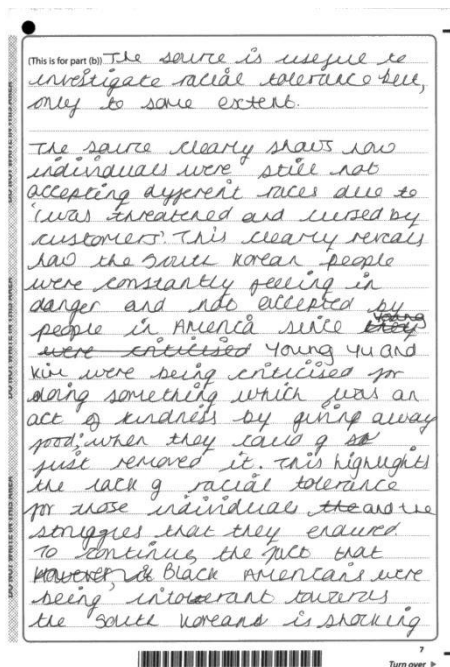 (This is for part (b)) The source is useful to
investigate racial tolerance but,
only to some extent.
The source clearly shows how
individuals were still not
accepting different races due to
'was threatened and cursed by
customers'. This clearly reveals
how the South Korean people
were constantly feeling in
danger and not accepted by
people in America since they
were criticised Young Yu and
Kim were being criticised for
doing something which was an
act of kindness by giving away
food when they could of so
just removed it. This highlights
the lack of racial tolerance
for those individuals the and the
struggles that they endured.
To continue, the fact that
However, Black Americans were
being intolerant towards
the South Koreans is shocking
7
Turn over
DO NOT WRITE IN THIS AREA
DO NOT WRITE IN THIS AREA
DO NOT WRITE IN THIS AREA